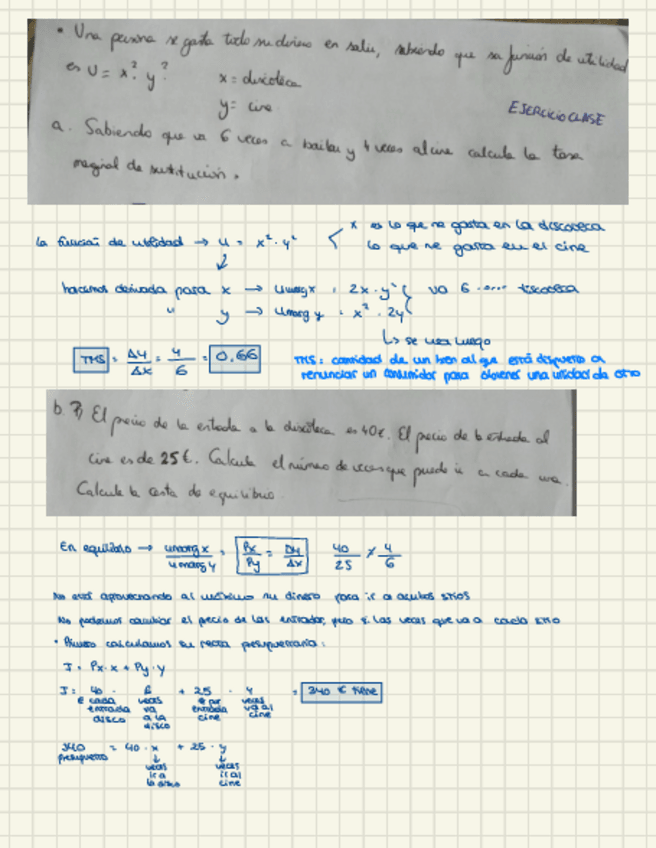 • Una persona se gasta todo su dinero en salir, sabiendo que su función de utilidad
es U = x². y².    x = discoteca
y = cine
EJERCICIO CLASE
a. Sabiendo que va 6 veces a bailar y 4 veces al cine calcula la tasa
marginal de sustitución.
la función de utilidad → u = x² · y²    x es lo que se gasta en la discoteca
lo que se gasta en el cine
hacemos derivada para x → Umarg x = 2x · y²    va 6 .... discoteca
" y → Umarg y = x² · 2y
↳ se usa luego
TMS = Δy/Δx = 4/6 = 0,66
TMS: cantidad de un bien al que está dispuesto a
renunciar un consumidor para obtener una unidad de otro
b. El precio de la entrada a la discoteca es 40€. El precio de la entrada al
cine es de 25€. Calcula el número de veces que puede ir a cada uno.
Calcula la cesta de equilibrio.
En equilibrio → umarg x / umarg y = Px/Py = Δy/Δx    40/25 ≠ 4/6
No está aprovechando al máximo su dinero para ir a ambos sitios
No podemos cambiar el precio de las entradas, pero sí las veces que va a cada sitio
• Primero calculamos su recta presupuestaria:
I = Px · x + Py · y
I = 40 · 6 + 25 · 4 = 340 € tiene
€ cada entrada disco    veces va a la disco    € por entrada cine    veces va al cine
340 = 40 · x + 25 · y
presupuesto    veces ir a la disco    veces ir al cine